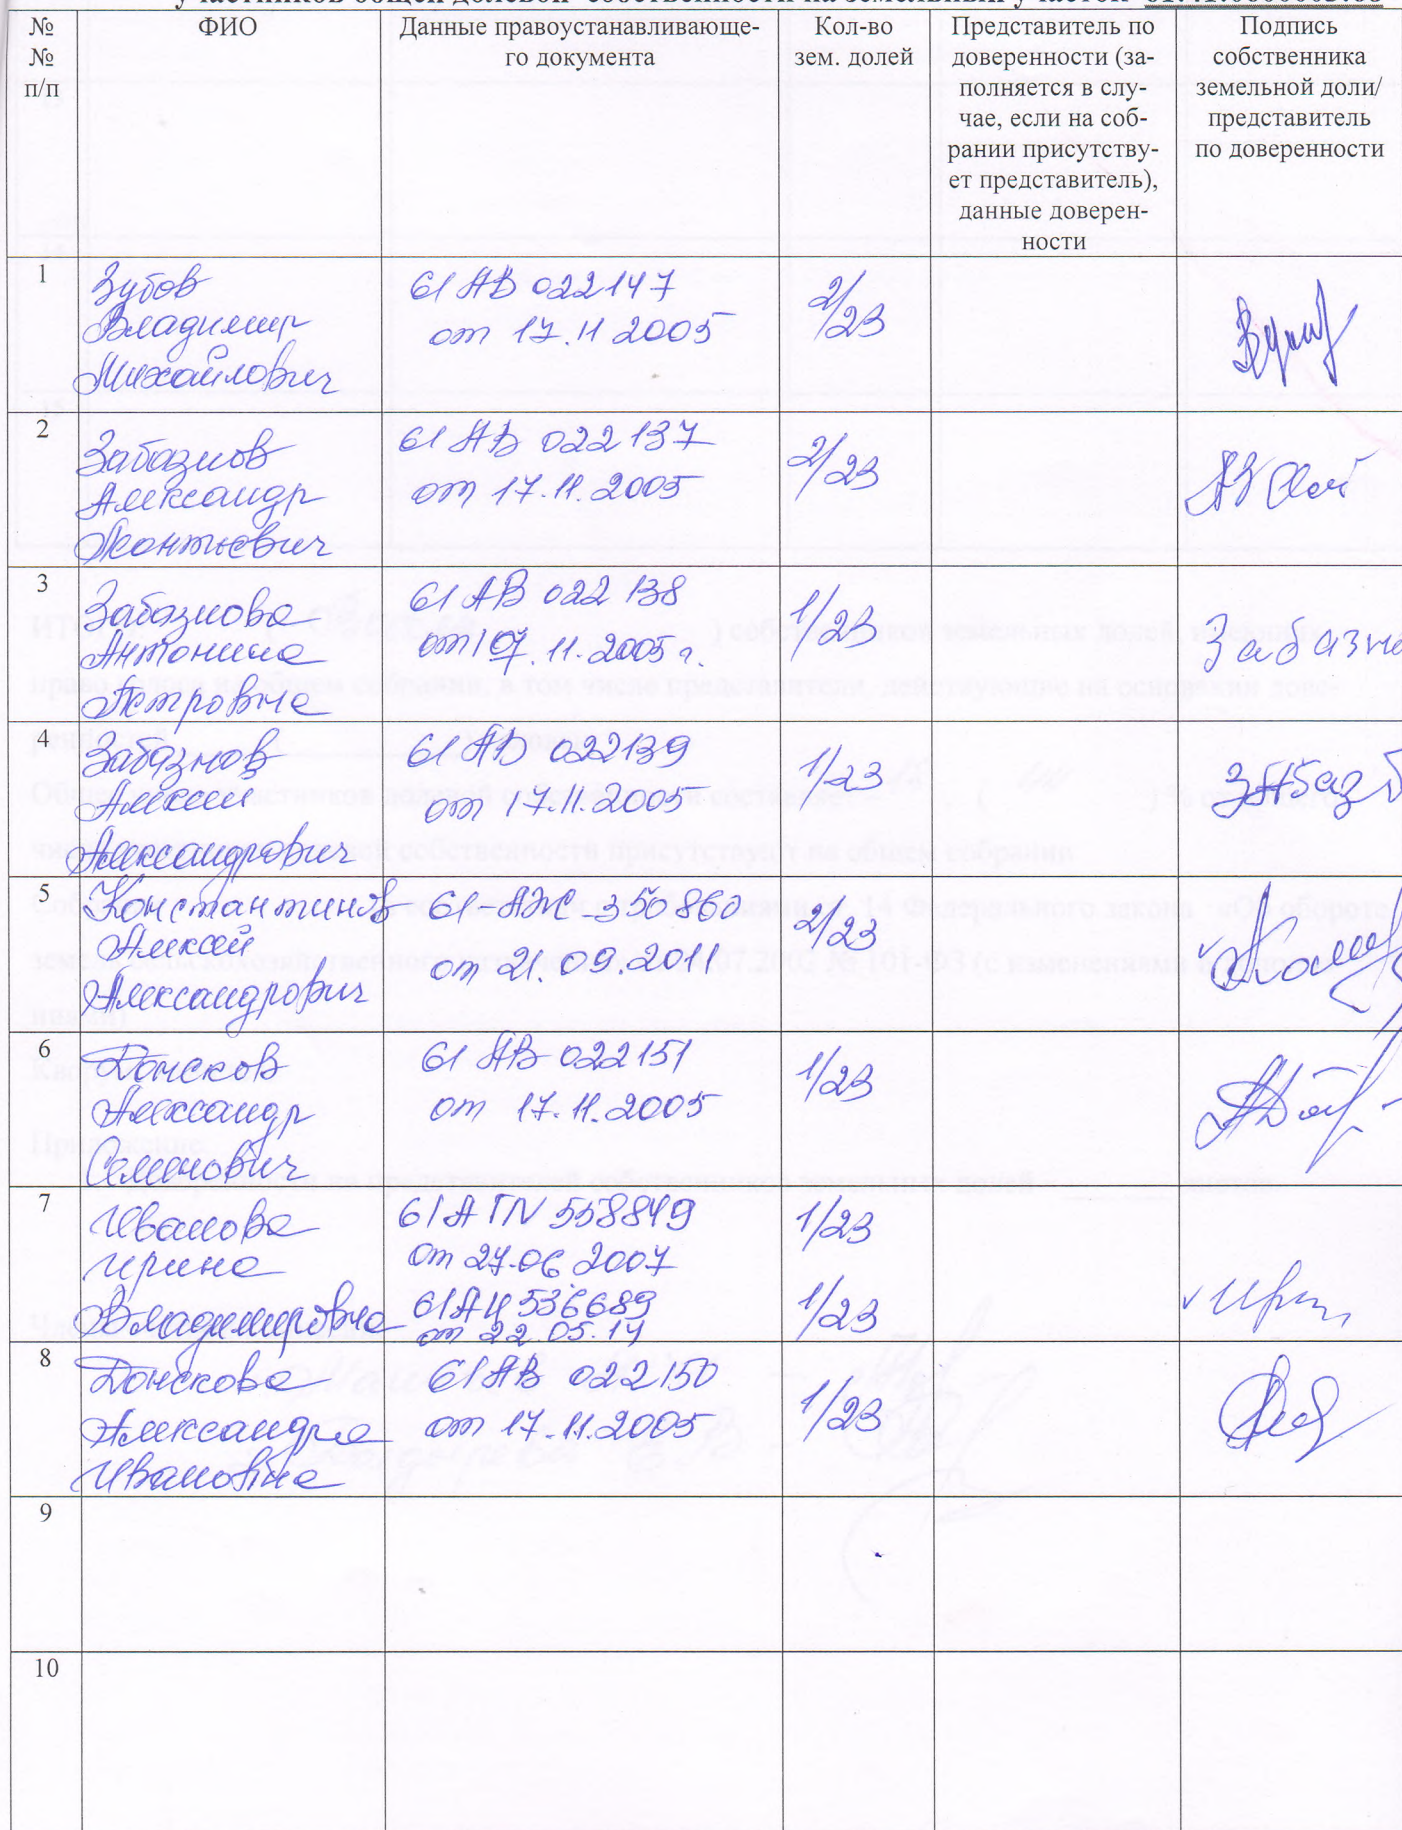 участников общей долевой собственности на земельный участок
№ № п/п
ФИО
Данные правоустанавливающе-
го документа
Кол-во
зем. долей
Представитель по
доверенности (за-
полняется в слу-
чае, если на соб-
рании присутству-
ет представитель),
данные доверен-
ности
Подпись
собственника
земельной доли/
представитель
по доверенности
1
Зубов
Владимир
Михайлович
61 АВ 022147
от 17.11 2005
2/23
2
Забазнов
Александр
Леонтьевич
61 АВ 022137
от 17.11.2005
2/23
3
Забазнова
Антонина
Петровна
61 АВ 022 138
от 17.11.2005 г.
1/23
Забазно
4
Забазнов
Алексей
Александрович
61 АВ 022139
от 17.11.2005
1/23
5
Константинов
Алексей
Александрович
61-АЖ-350860
от 21.09.2011
2/23
6
Донсков
Александр
Семенович
61 АВ 022151
от 17.11.2005
1/23
7
Иванова
Ирина
Владимировна
61 А 558849
от 27.06 2007
1/23
61 536689
от 22.05.14
1/23
8
Донскова
Александра
Ивановна
61 АВ 022150
от 17.11.2005
1/23
9
10